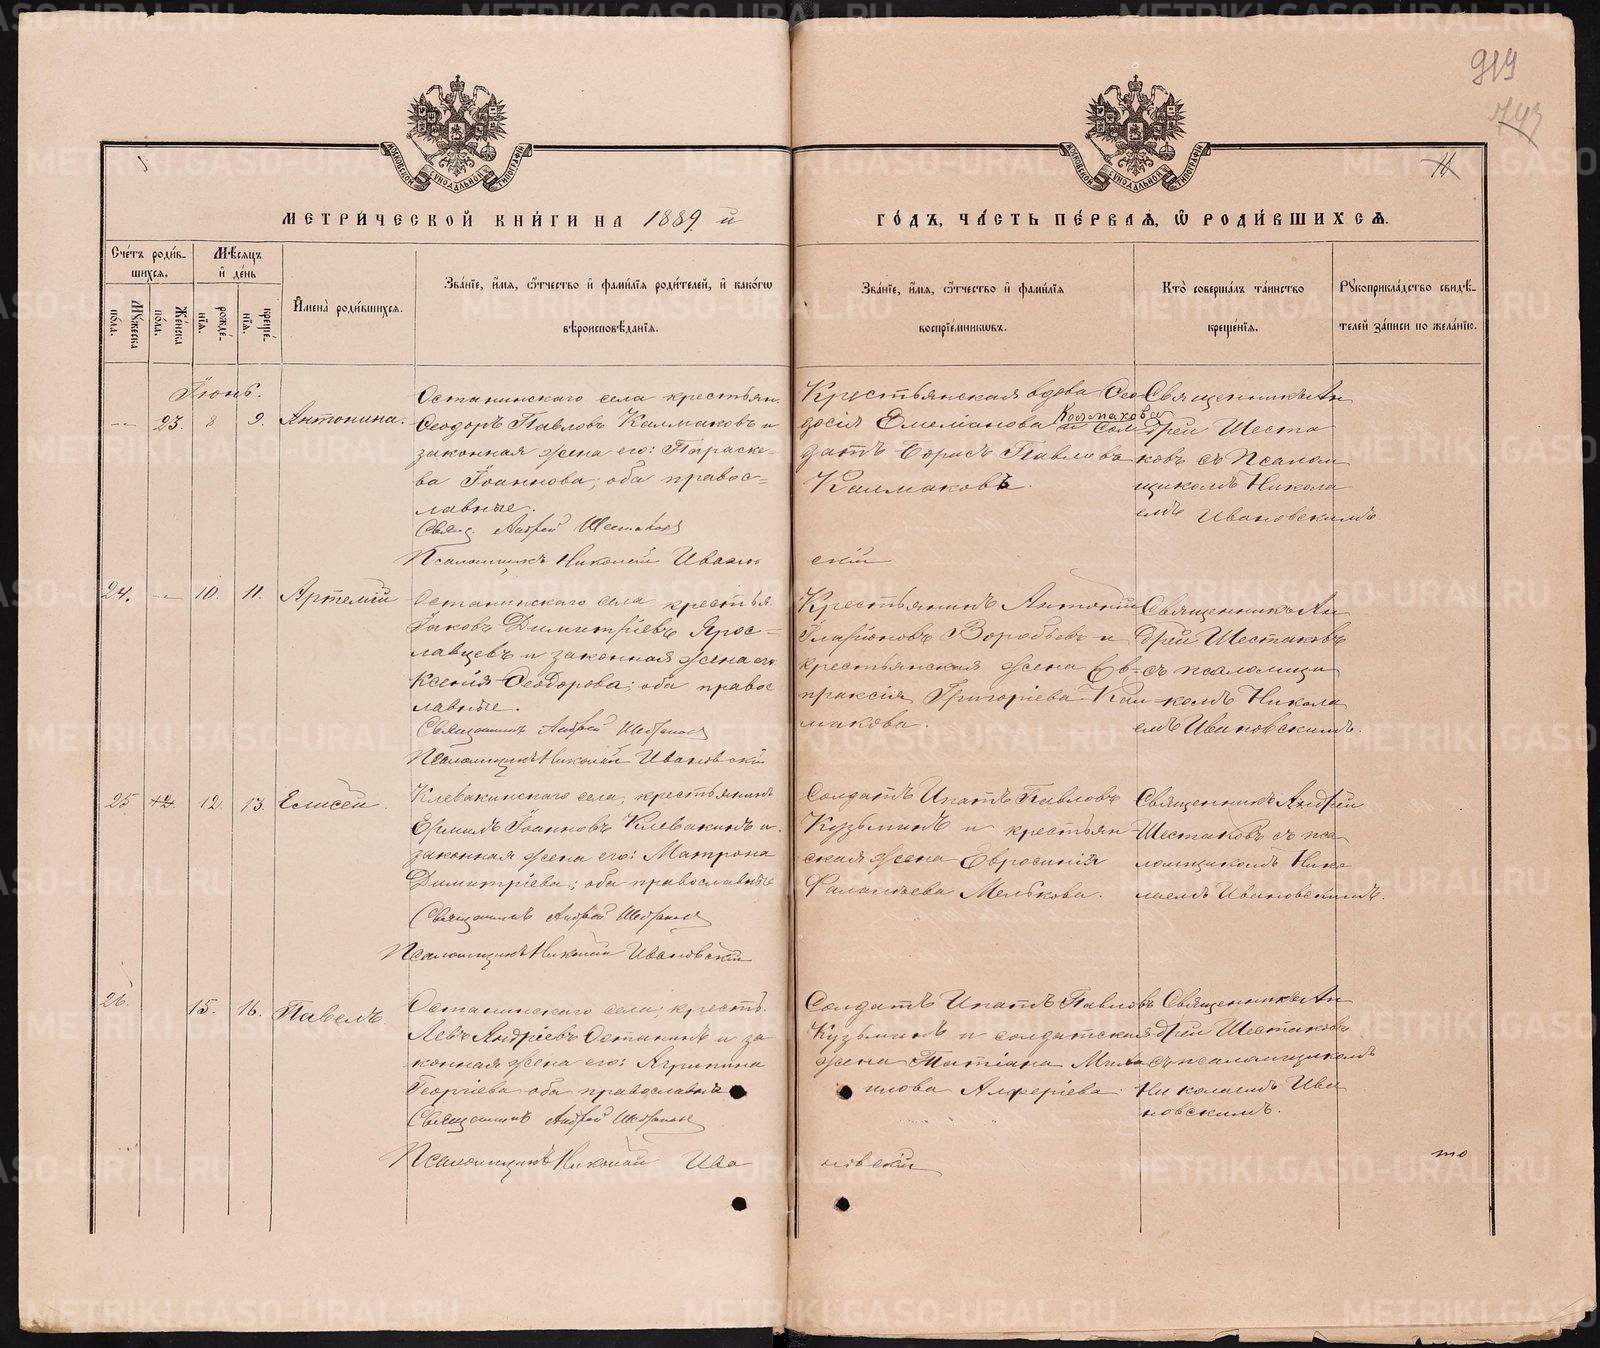 919
747
11
МОСКОВСКОЙ СѴНОДАЛЬНОЙ ТИПОГРАФІИ
МОСКОВСКОЙ СѴНОДАЛЬНОЙ ТИПОГРАФІИ
МЕТРИ́ЧЕСКОЙ КНИ́ГИ НА 1889 й
ГО́ДЪ, ЧА́СТЬ ПЕ́РВАЯ, Ѡ РОДИ́ВШИХСЯ.
Сче́тъ роди́в-
шихся.
Мѣ́сяцъ
и҆ де́нь
Му́жеска
по́ла.
Же́нска
по́ла.
рожде́-
нїѧ.
креще́-
нїѧ.
И҆мена̀ роди́вшихся.
Зва́нїе, и҆́мя, ѻ҆́тчество и҆ фами́лїя роди́телей, и҆ како́гѡ
вѣроисповѣ́данїя.
Зва́нїе, и҆́мя, ѻ҆́тчество и҆ фами́лїя
воспрїе́мникѡвъ.
Кто̀ соверша́лъ та́инство
креще́нїя.
Рукоприкла́дство свидѣ́-
телей за́писи по жела́нїю.
Іюнь.
23. 8 9. Антонина.
Останинскаго села крестьян.
Ѳеодоръ Павловъ Калмаковъ и
законная жена его: Параске-
ва Іоаннова; оба правос-
лавные.
Свящ. Андрей Шестаковъ
Псаломщикъ Николай Иванов
скій
Крестьянская вдова Ѳео
досія Емеліанова Колмакова
и Сол
датъ Борисъ Павловъ
Калмаковъ.
Священникъ Ан
дрей Шеста
ковъ съ Псалом
щикомъ Никола
емъ Ивановскимъ
24. 10. 11. Артемій
Останинскаго села крестья.
Іаковъ Димитріевъ Ярос-
лавцевъ и законная жена его
Ксенія Ѳеодорова; оба правос
лавные.
Священникъ Андрей Шестаковъ
Псаломщикъ Николай Ивановскій
Крестьянинъ Антоній
Иларіоновъ Воробьевъ и
крестьянская жена Ев-
праксія Григоріева Кал-
макова.
Священникъ Ан
дрей Шестаковъ
съ псаломщи
комъ Никола
емъ Ивановскимъ.
25 12 13. Елисей.
Клевакинскаго села, крестьянинъ
Ермилъ Іоанновъ Клевакинъ и
законная жена его: Матрона
Димитріева; оба православные
Священникъ Андрей Шестаковъ
Псаломщикъ Николай Ивановскій
Солдатъ Ипатъ Павловъ
Кузьминъ и крестьян-
ская жена Евросинія
Мелькова.
Священникъ Андрей
Шестаковъ съ пса
ломщикомъ Нико
лаемъ Ивановскимъ.
26. 15. 16. Павелъ
Останинскаго села, кресть.
Левъ Андріевъ Останинъ и за
конная жена его: Агрипина
Георгіева оба православные
Священникъ Андрей Шестаковъ
Псаломщикъ Николай Ива
новскій
Солдатъ Ипатъ Павловъ
Кузьминъ и солдатская
жена Татіана Миха
илова Алферіева.
Священникъ Ан
дрей Шестаковъ
съ псаломщикомъ
Николаемъ Ива
новскимъ.
то
METRIKI.GASO-URAL.RU